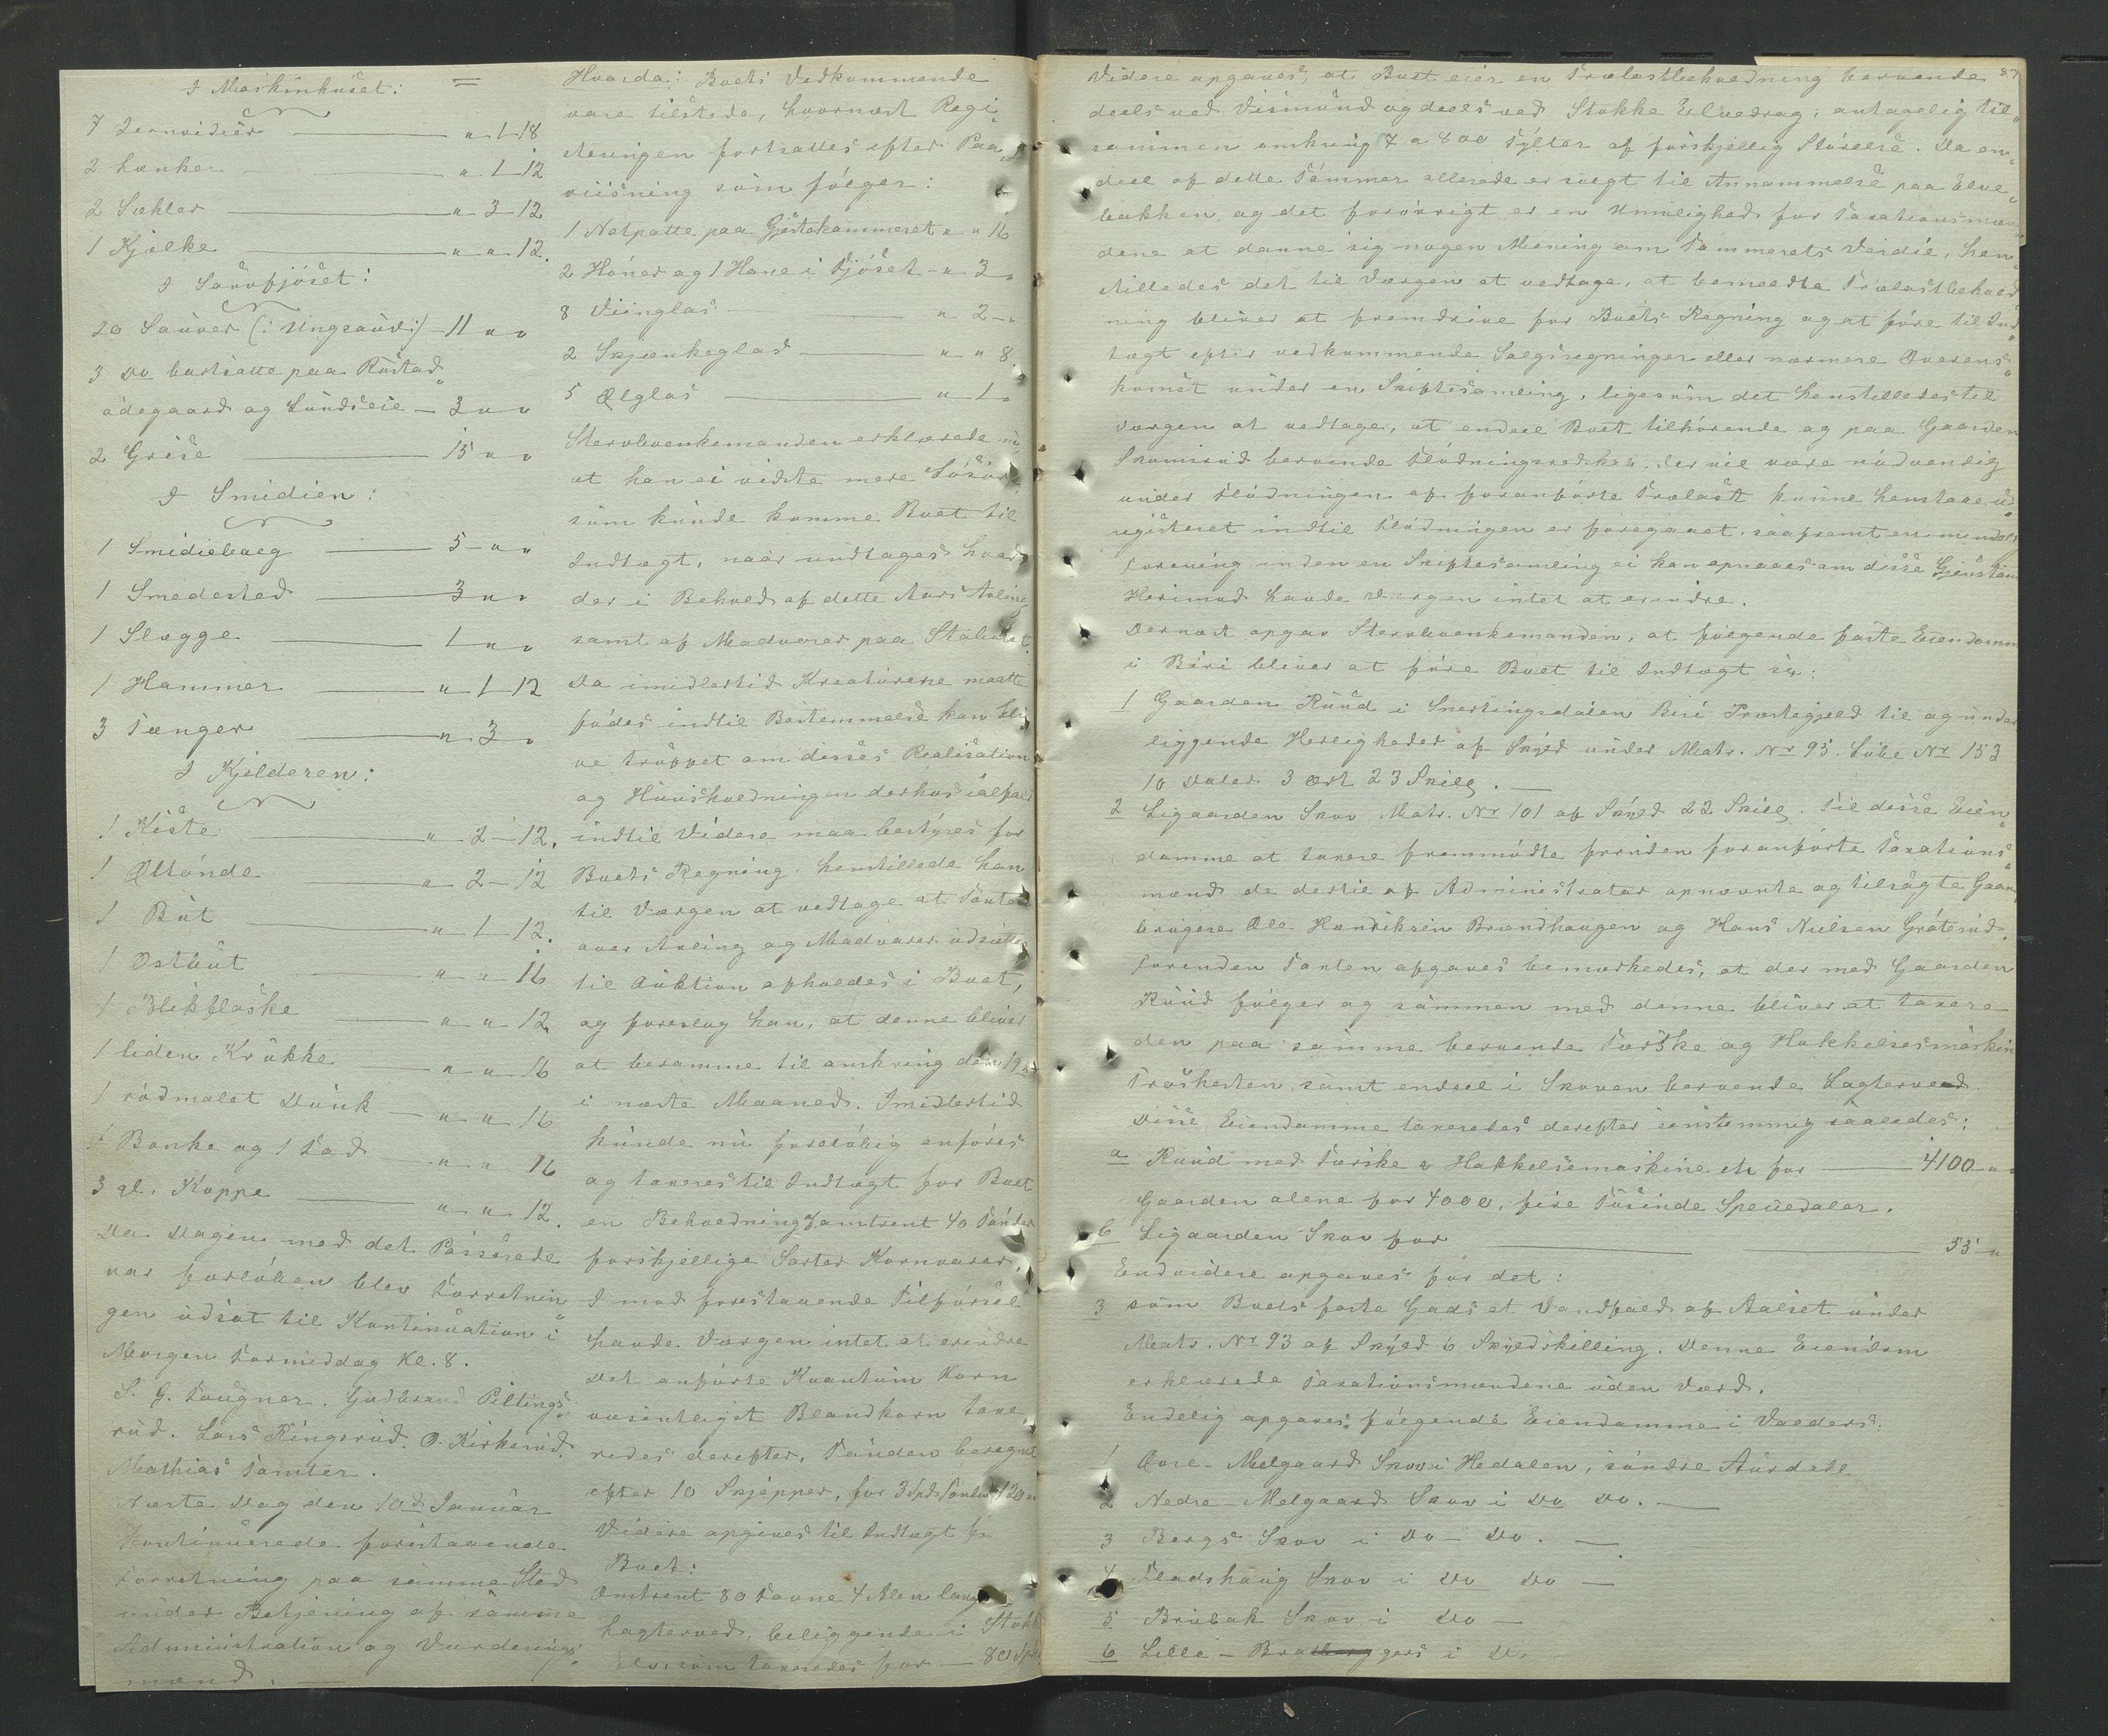 I Maskinhuset:
7 Jernvidier — " 1 18
2 Lænker — " 1 12
2 Sæhler — " 3 12
1 Kjelke — " " 12.
I Sauvfjöset:
20 Sauver (: Ungsauv :) — 11 " "
3 do bortsatte paa Rustad
ödegaard og Lundseie — 3 " "
2 Grise — 15 " "
I Smidien:
1 Smidiebælg — 5 " "
1 Smedested — 3 " "
1 Slægge — 1 " "
1 Hammer — " 1 12
3 Tænger — " 3 "
I Kjelderen:
1 Kiste — " 2 12.
1 Øltönde — " 2 12
1 Büt — " 1 12.
1 Ostbüt — " " 16
1 Blikflaske — " " 12
1 liden Krukke — " " 16
1 rödmalet Dunk — " " 16
1 Banke og 1 Fad — " " 16
3 gl. Koppe — " " 12.
Da Dagen med det Passerede
var forlöben blev Forretnin
gen udsat til Kontinuation i
Morgen Formiddag Kl. 8.
S. G. Fougner. Gudbrand Piltings
rud. Lars Kingsrud. O. Kirkerud.
Mathias Tomter.
Næste Dag den 10de Januar
Kontinuerede forestaaende
Forretning paa samme Sted
under Betjening af samme
Administration og Vurderings
mænd. —
Hvorda: Boets Vedkommende
vare tilstede, hvornæst Regi
streringen fortsattes efter Paa
viisning som fölger:
1 Natpotte paa Gjestekammeret " " 16
2 Höner og 1 Hane i Fjöset " 3 "
8 Viinglas — " 2 "
2 Skjænkeglas — " " 8
5 Ølglas — " 1 "
Stervboenkemanden erklærede nu
at han ei vidste mere Lösöre
som kunde komme Boet til
Indtægt, naar undtages hvad
der i Behold af dette Aars Avling
samt af Madvarer paa Staburet.
Da imidlertid Kreaturene maatte
födes indtil Bestemmelse kan bli
ve truffet om disses Realisation
og Huusholdningen derhos ialfald
indtil Videre maa bestyres for
Boets Regning. henstillede han
til Værgen at vedtage at Taxten
over Avling og Madvarer udsættes
til Auktion afholdes i Boet,
og foreslog han, at denne bliver
at beramme til omkring den 19de
i næste Maaned. Imidlertid
kunde nu forelöbig anföres
og taxeres til Indtægt for Boet
en Beholdning omtrent 40 Tönder
forskjellige Sorter Kornvarer.
I mod forestaaende Tilförsel
havde Værgen intet at erindre
Det anförte Kvantum Korn
væsentligst Blandkorn taxe
redes derefter, Tönden beregnet
efter 10 Skjepper, for 3 Spd. Tönden 120 "
Videre opgives til Indtægt for
Boet:
Omtrent 80 Favne 4 Alen lang
Lagterved, beliggende i Stokke
Elv, som taxeredes for — 80 Spd
87
Videre opgaves, at Boet eier en Trælastbeholdning beroende
deels ved Vismund og deels ved Stokke Elvedrag, antagelig til
sammen omkring 7 a 800 Tylter af forskjellig Störrelse. Da en
deel af dette Tömmer allerede er solgt til Annammelse paa Elve
bakken, og det forövrigt er en Umulighed for Taxationsmæn
dene at danne sig nogen Mening om Tömmerets Værdie, hen
stilledes det til Værgen at vedtage, at bemeldte Trælastbehold
ning bliver at fremdrive for Boets Regning og at före til Ind
tægt efter vedkommende Salgsregninger eller nærmere Overens
komst under en Skiftesamling, ligesom det henstilledes til
Værgen at vedtage, at endeel Boet tilhörende og paa Gaarden
Skumsrud beroende Flödningsredskab, der vil være nödvendig
under Flödningen af foranförte Trælast kunne henstaae u
registeret indtil Flödningen er foregaaet, saafremt en mindelig
Forening inden en Skiftesamling ei kan opnaaes om disse Gjenstan
Herimod havde Værgen intet at erindre.
Dernæst opgav Stervboenkemanden, at fölgende faste Eiendomm
i Biri bliver at före Boet til Indtægt saa:
1 Gaarden Ruud i Snertingsdalen Biri Præstegjæld til og under
liggende Herligheder af Skyld under Matr. Nr 95. Löbe Nr 153
10 Daler 3 Ort 23 Skill. —
2 Ligaarden Skov Matr. Nr 101 af Skyld 22 Skill. Til disse Eien
domme at taxere fremmödte foruden foranförte Taxations
mænd de dertil af Administrator opnævnte og tilsagte Gaard
brugere Ole Hendriksen Brændhaugen og Hans Nielsen Gröterud.
Forinden Taxten afgaves bemærkedes, at der med Gaarden
Ruud fölger og sammen med denne bliver at taxere
den paa samme beroende Tærske og Hakkelsesmaskin
Troshesten samt endeel i Skoven beroende Lagterved
Disse Eiendomme taxeredes derefter eenstemmig saaledes:
a Ruud med Tærske & Hakkelsemaskine etc for — 4100 "
Gaarden alene for 4000, fire Tusinde Speciedaler.
b Ligaarden Skov for — 55 "
Endvidere opgaves for det:
3 som Boets faste Gods et Vandfald af Aalset under
Matr. Nr 93 af Skyld 6 Skyldskilling. Denne Eiendom
erklærede Taxationsmændene uden Værd.
Endelig opgaves fölgende Eiendomme i Valders:
1 Øvre-Melgaard Skov i Hedalen, söndre Aurdahl
2 Nedre-Melgaard Skov i do do. —
3 Bergs Skov i do — do. —
4 Fladshaug Skov i do do —
5 Brubak Skov i do —
6 Lille-Bra gers i do